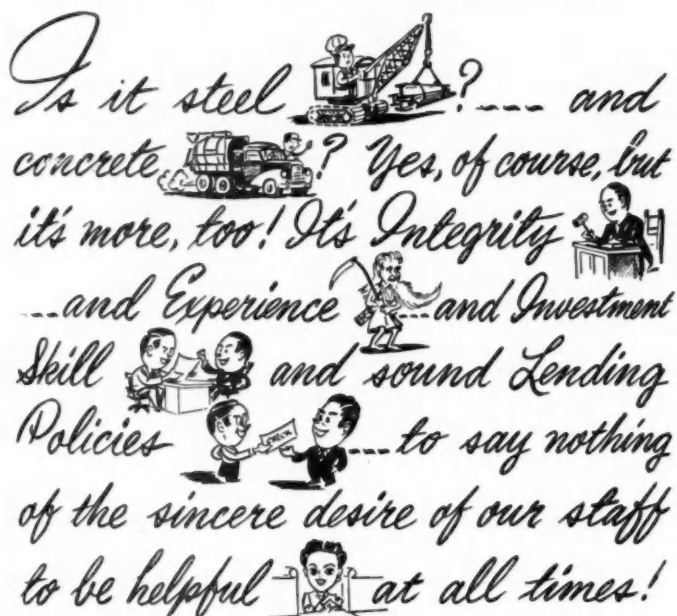 Is it steel ?---- and
concrete ? Yes, of course, but
it's more, too! It's Integrity
---and Experience ---and Investment
Skill and sound Lending
Policies CHECK ---to say nothing
of the sincere desire of our staff
to be helpful at all times!